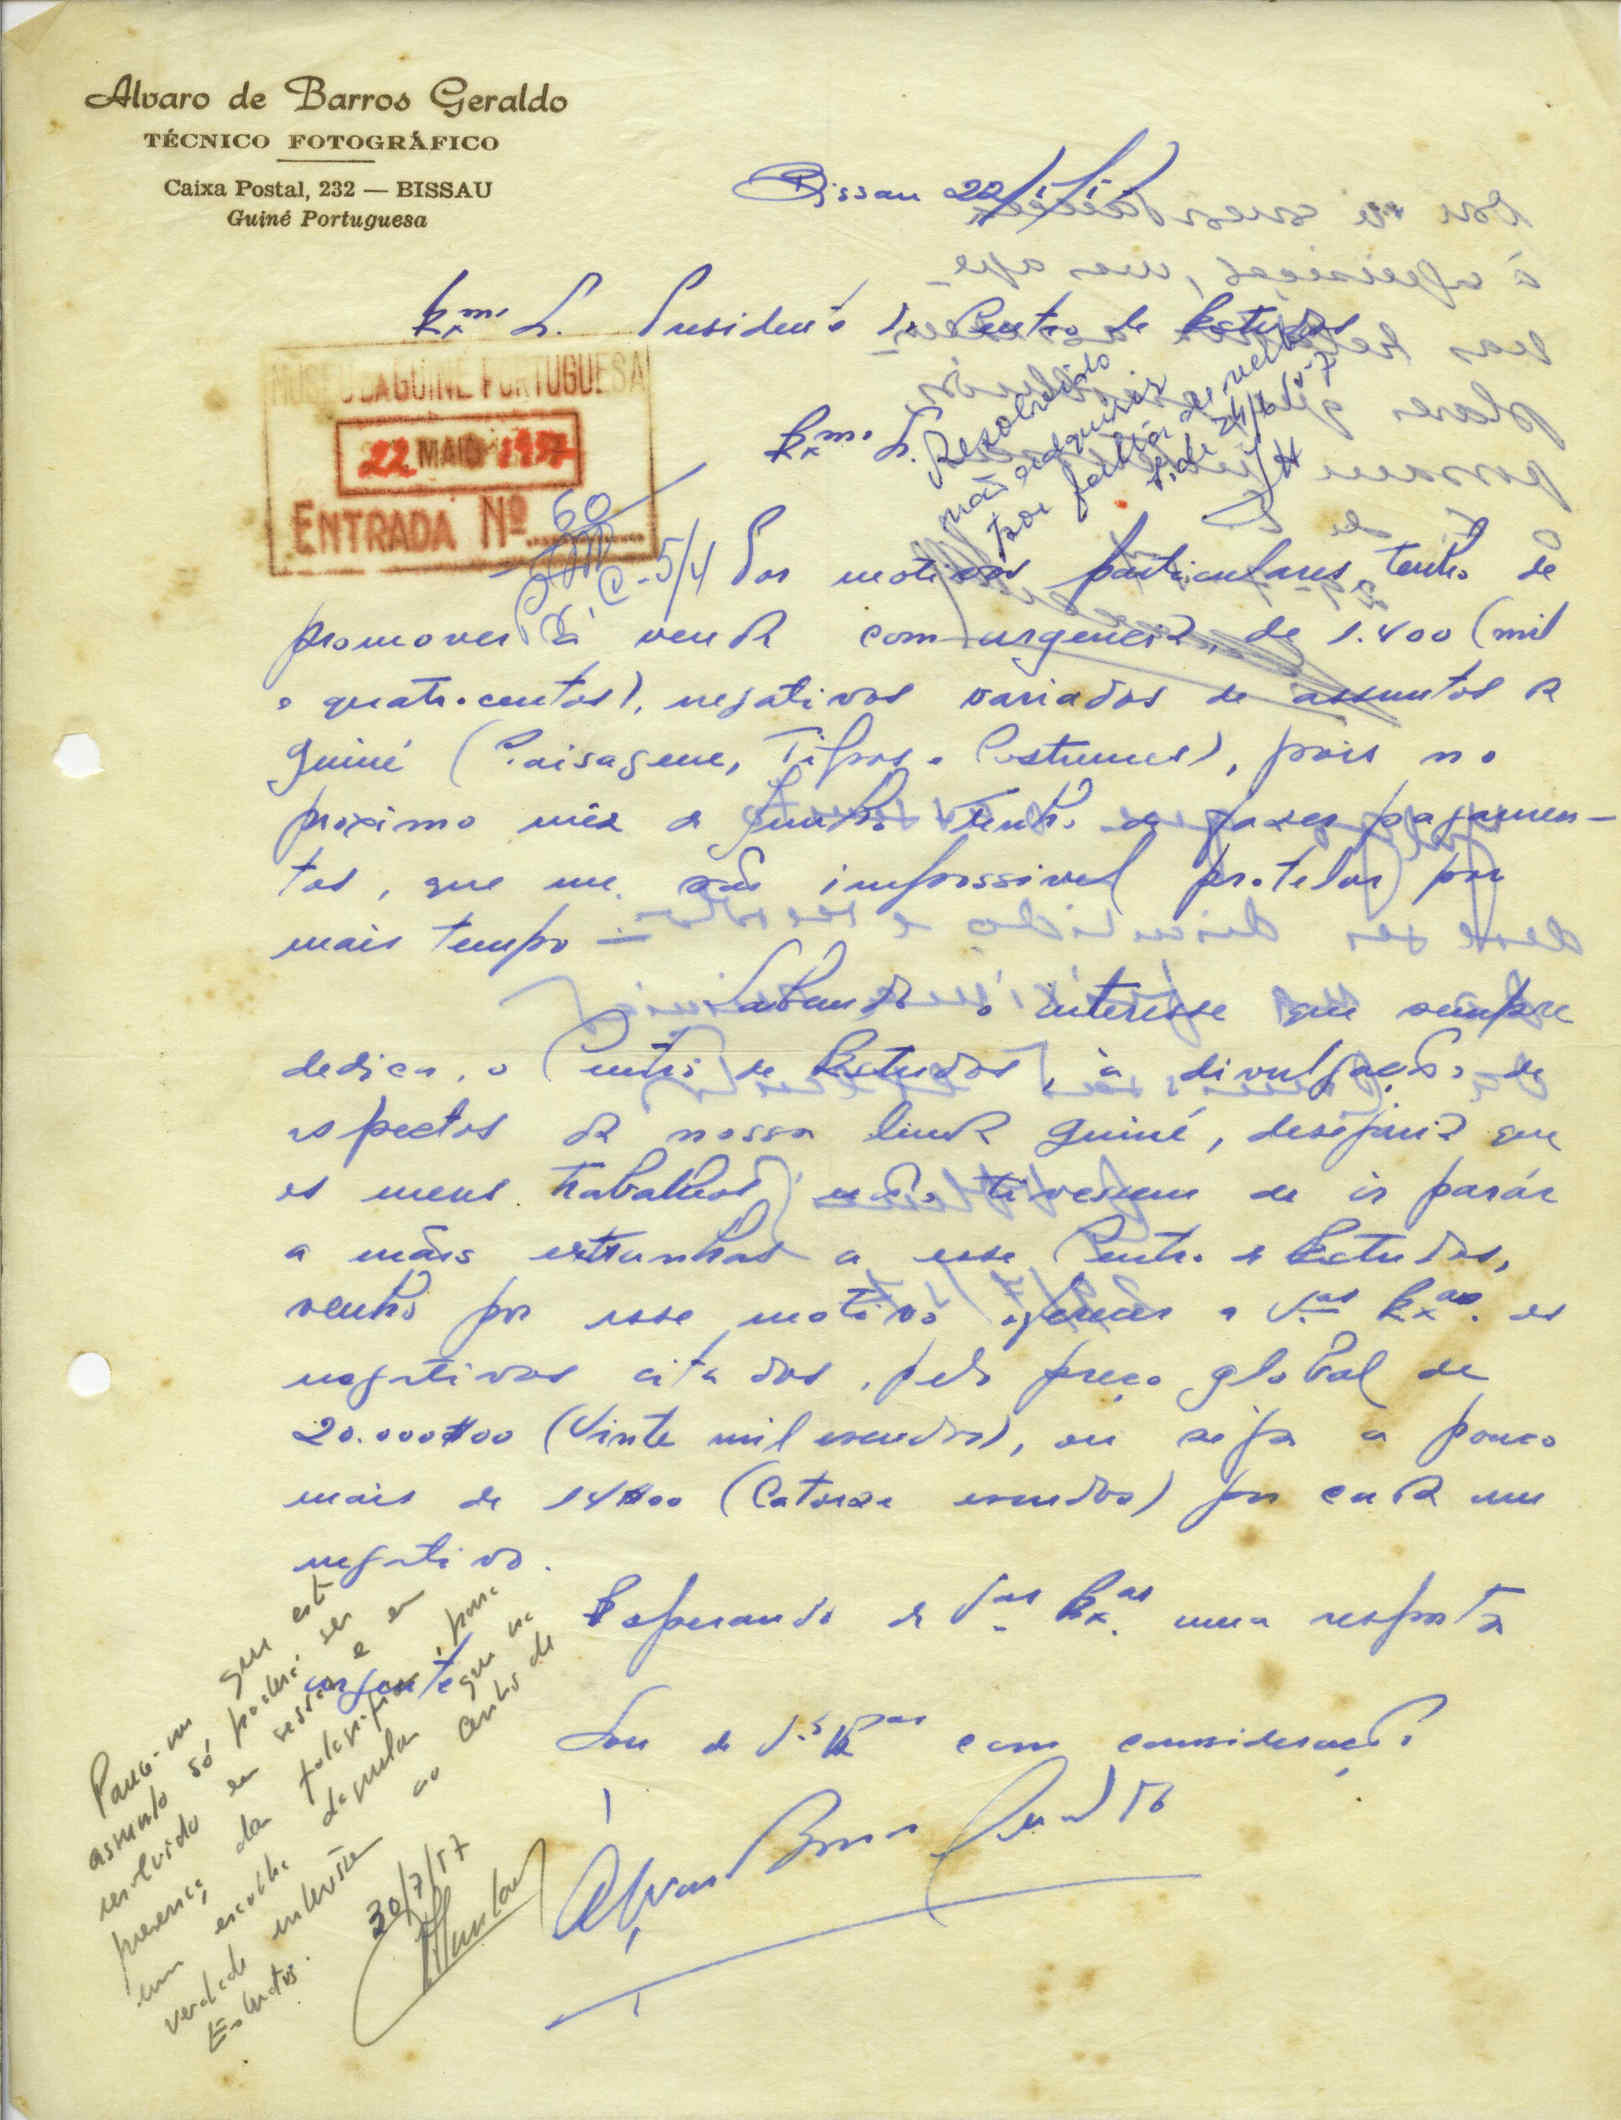 Alvaro de Barros Geraldo
TÉCNICO FOTOGRÁFICO
Caixa Postal, 232 — BISSAU
Guiné Portuguesa
Bissau 22/5/57
Exmo. Sr. Presidente do Centro de Estudos
MUSEU DA GUINÉ PORTUGUESA
22 MAIO 1957
ENTRADA Nº 60
C-5/4
Resolvido
não adquirir
por falta de verba
24/6
Exmo. Sr.
Por motivos particulares, tenho de
promover á venda com urgencia, de 1.400 (mil
e quatrocentos), negativos variados de assuntos da
Guiné (Paisagens, Tipos e Costumes), pois no
proximo mês de Junho tenho de fazer pagamen-
tos, que me são impossivel protelar por
mais tempo —
Sabendo o interesse que sempre
dedica, o Centro de Estudos, à divulgação de
aspectos da nossa linda Guiné, desejaria que
os meus trabalhos não tivessem de ir parár
a mãos estranhas a esse Centro de Estudos,
venho por esse motivo oferecer a V.as Ex.as os
negativos citados, pelo preço global de
20.000$00 (Vinte mil escudos), ou seja a pouco
mais de 14$00 (Catorze escudos) por cada um
negativo.
Esperando de V.as Ex.as uma resposta
urgente
Sou de V.as Ex.as com consideração
Alvaro Barros Geraldo
Parece-me que este
assunto só poderá ser
resolvido em sessão e em
presença das fotografias, para
uma escolha daquelas que na
verdade interessem ao Centro de
Estudos.
30/7/57